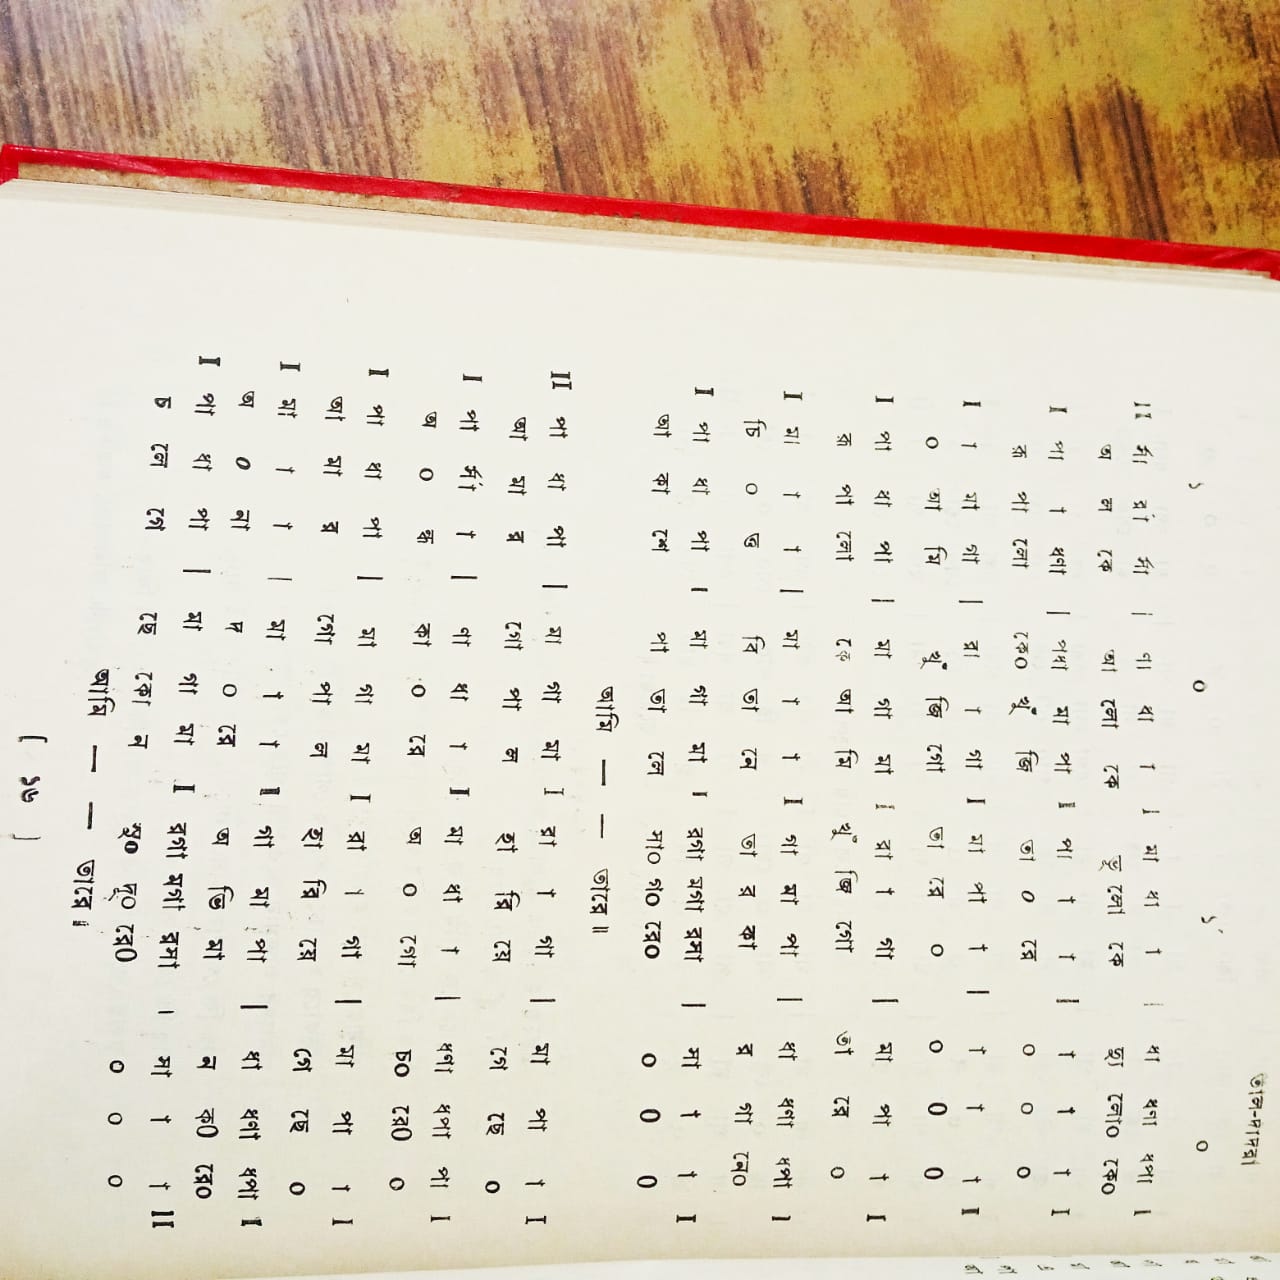 তাল-দাদরা
১ ০ ১´ ০
II র্সা র্রা র্সা | ণা ধা † | মা ধা † | ধা ধণা ধপা I
অ ল কে আ লো কে ভু লো কে দ্যু লো০ কে০
I পা † ধণা | পধা মা পা I পা † † | † † † I
রূ প লো কে০ খুঁ জি তা ০ রে ০ ০ ০
I † মা গা | রা † গা I মা পা † | † † † I
০ আ মি খুঁ জি গো তা রে ০ ০ ০ ০
I পা ধা পা | মা গা মা I রা † গা | মা পা † I
রূ প লো কে আ মি খুঁ জি গো তা রে ০
I মা † † | মা † † I গা মা পা | ধা ধণা ধপা I
চি ০ ত্ত বি তা নে তা র কা র গা নে০
I পা ধা পা | মা গা মা I রগা মগা রসা | সা † † I
আ কা শে পা তা লে সা০ গ০ রে০ ০ ০ ০
আমি — — তারে ॥
II পা ধা পা | মা গা মা I রা † গা | মা পা † I
আ মা র গো প ন হা রি য়ে গে ছে ০
I পা র্সা † | ণা ধা † I মা ধা † | ধণা ধপা পা I
অ ০ ন্ধ কা ০ রে অ ০ গো চ০ রে০ ০
I পা ধা পা | মা গা মা I রা † গা | মা পা † I
আ মা র গো প ন হা রি য়ে গে ছে ০
I মা † † | মা † † I গা মা পা | ধা ধণা ধপা I
অ ০ না দ ০ রে অ ভি মা ন ক০ রে০
I পা ধা পা | মা গা মা I রগা মগা রসা | সা † † II
চ লে গে ছে কো ন সু০ দূ০ রে০ ০ ০ ০
আমি — — তারে॥
[ ১৬ ]